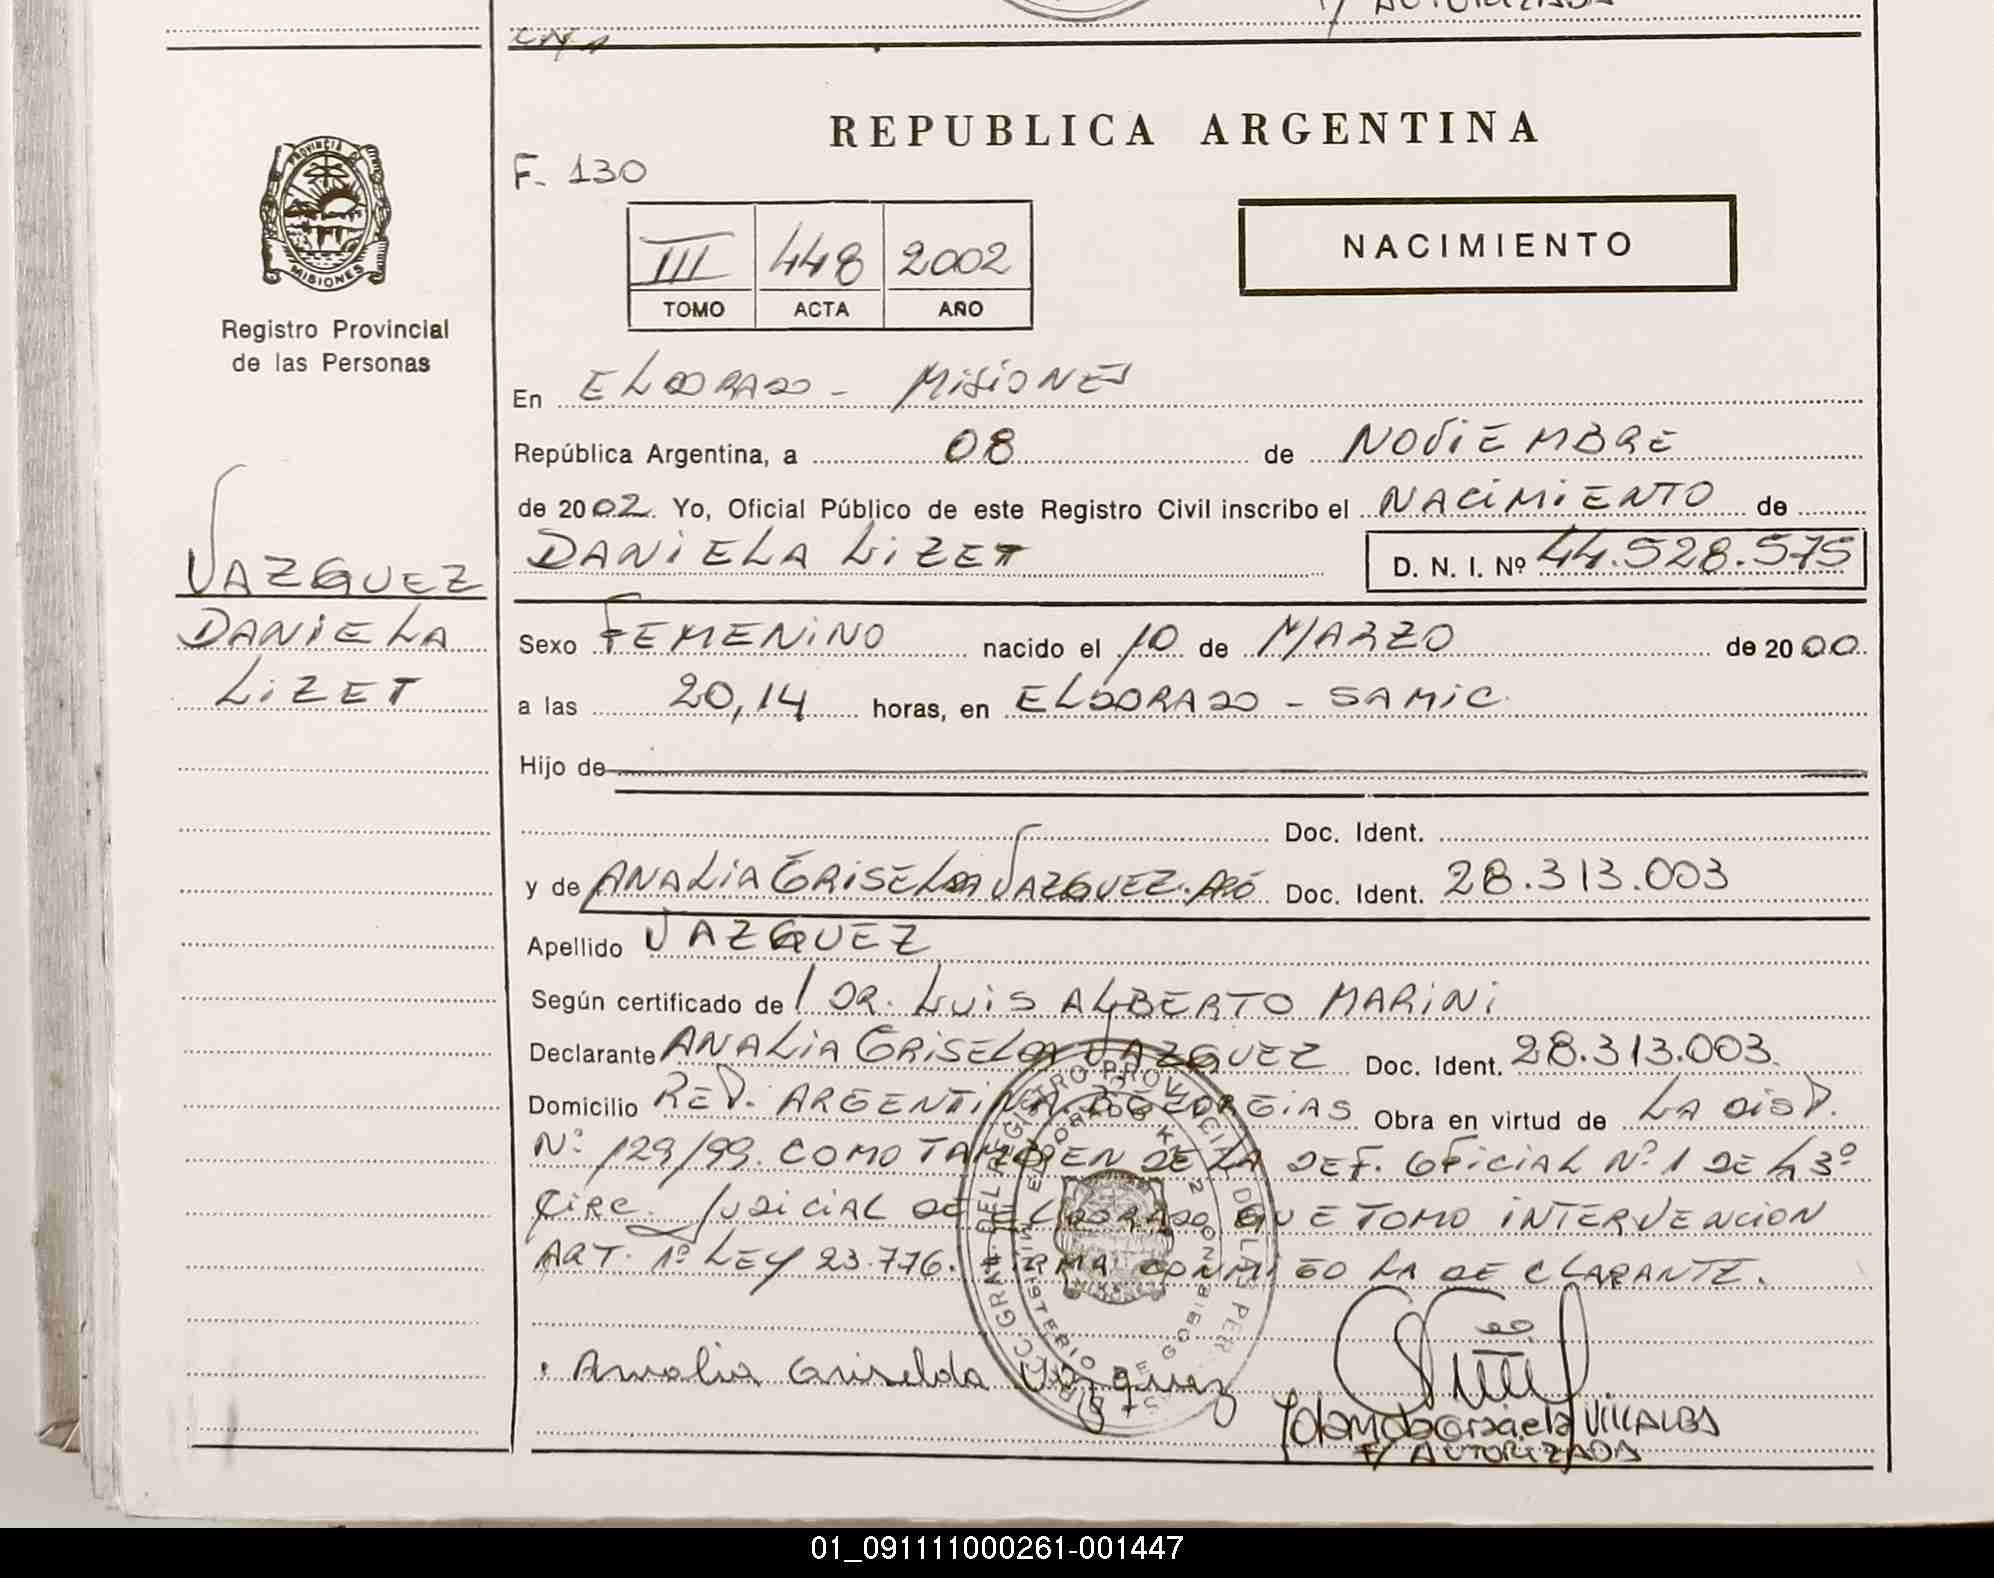 REPUBLICA ARGENTINA
F. 130
III 448 2002
TOMO ACTA AÑO
NACIMIENTO
PROVINCIA DE
MISIONES
Registro Provincial
de las Personas
VAZQUEZ
DANIELA
LIZET
En ELDORADO - MISIONES
República Argentina, a 08 de NOVIEMBRE
de 2002. Yo, Oficial Público de este Registro Civil inscribo el NACIMIENTO de
DANIELA LIZET D. N. I. Nº 44.528.575
Sexo FEMENINO nacido el 10 de MARZO de 2000.
a las 20,14 horas, en ELDORADO - SAMIC.
Hijo de
Doc. Ident.
y de ANALIA GRISELDA VAZQUEZ. Doc. Ident. 28.313.003
Apellido VAZQUEZ
Según certificado de DR. LUIS ALBERTO MARINI
Declarante ANALIA GRISELDA VAZQUEZ Doc. Ident. 28.313.003.
Domicilio REP. ARGENTINA GEORGIAS Obra en virtud de LA DISP.
Nº 129/99. COMO TAMBIEN DE LA DEF. OFICIAL Nº 1 DE L 3º
CIRC. JUDICIAL DE ELDORADO QUE TOMO INTERVENCION
ART. 1º LEY 23.776. FIRMA CONMIGO LA DECLARANTE.
Analia Griselda Vazquez
Yolanda Graciela VILLALBA
F/ AUTORIZADA
01_091111000261-001447